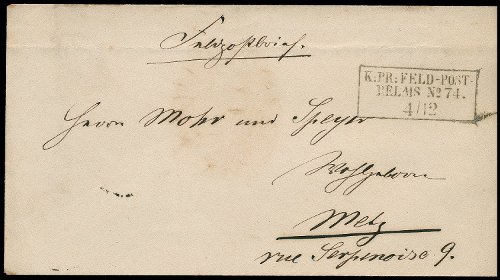 Feldpostbrief.
K:PR:FELD-POST-
RELAIS No 74.
4/12
Herrn Mohr und Speyer
Wohlgeborn
Metz
rue Serpenoise 9.